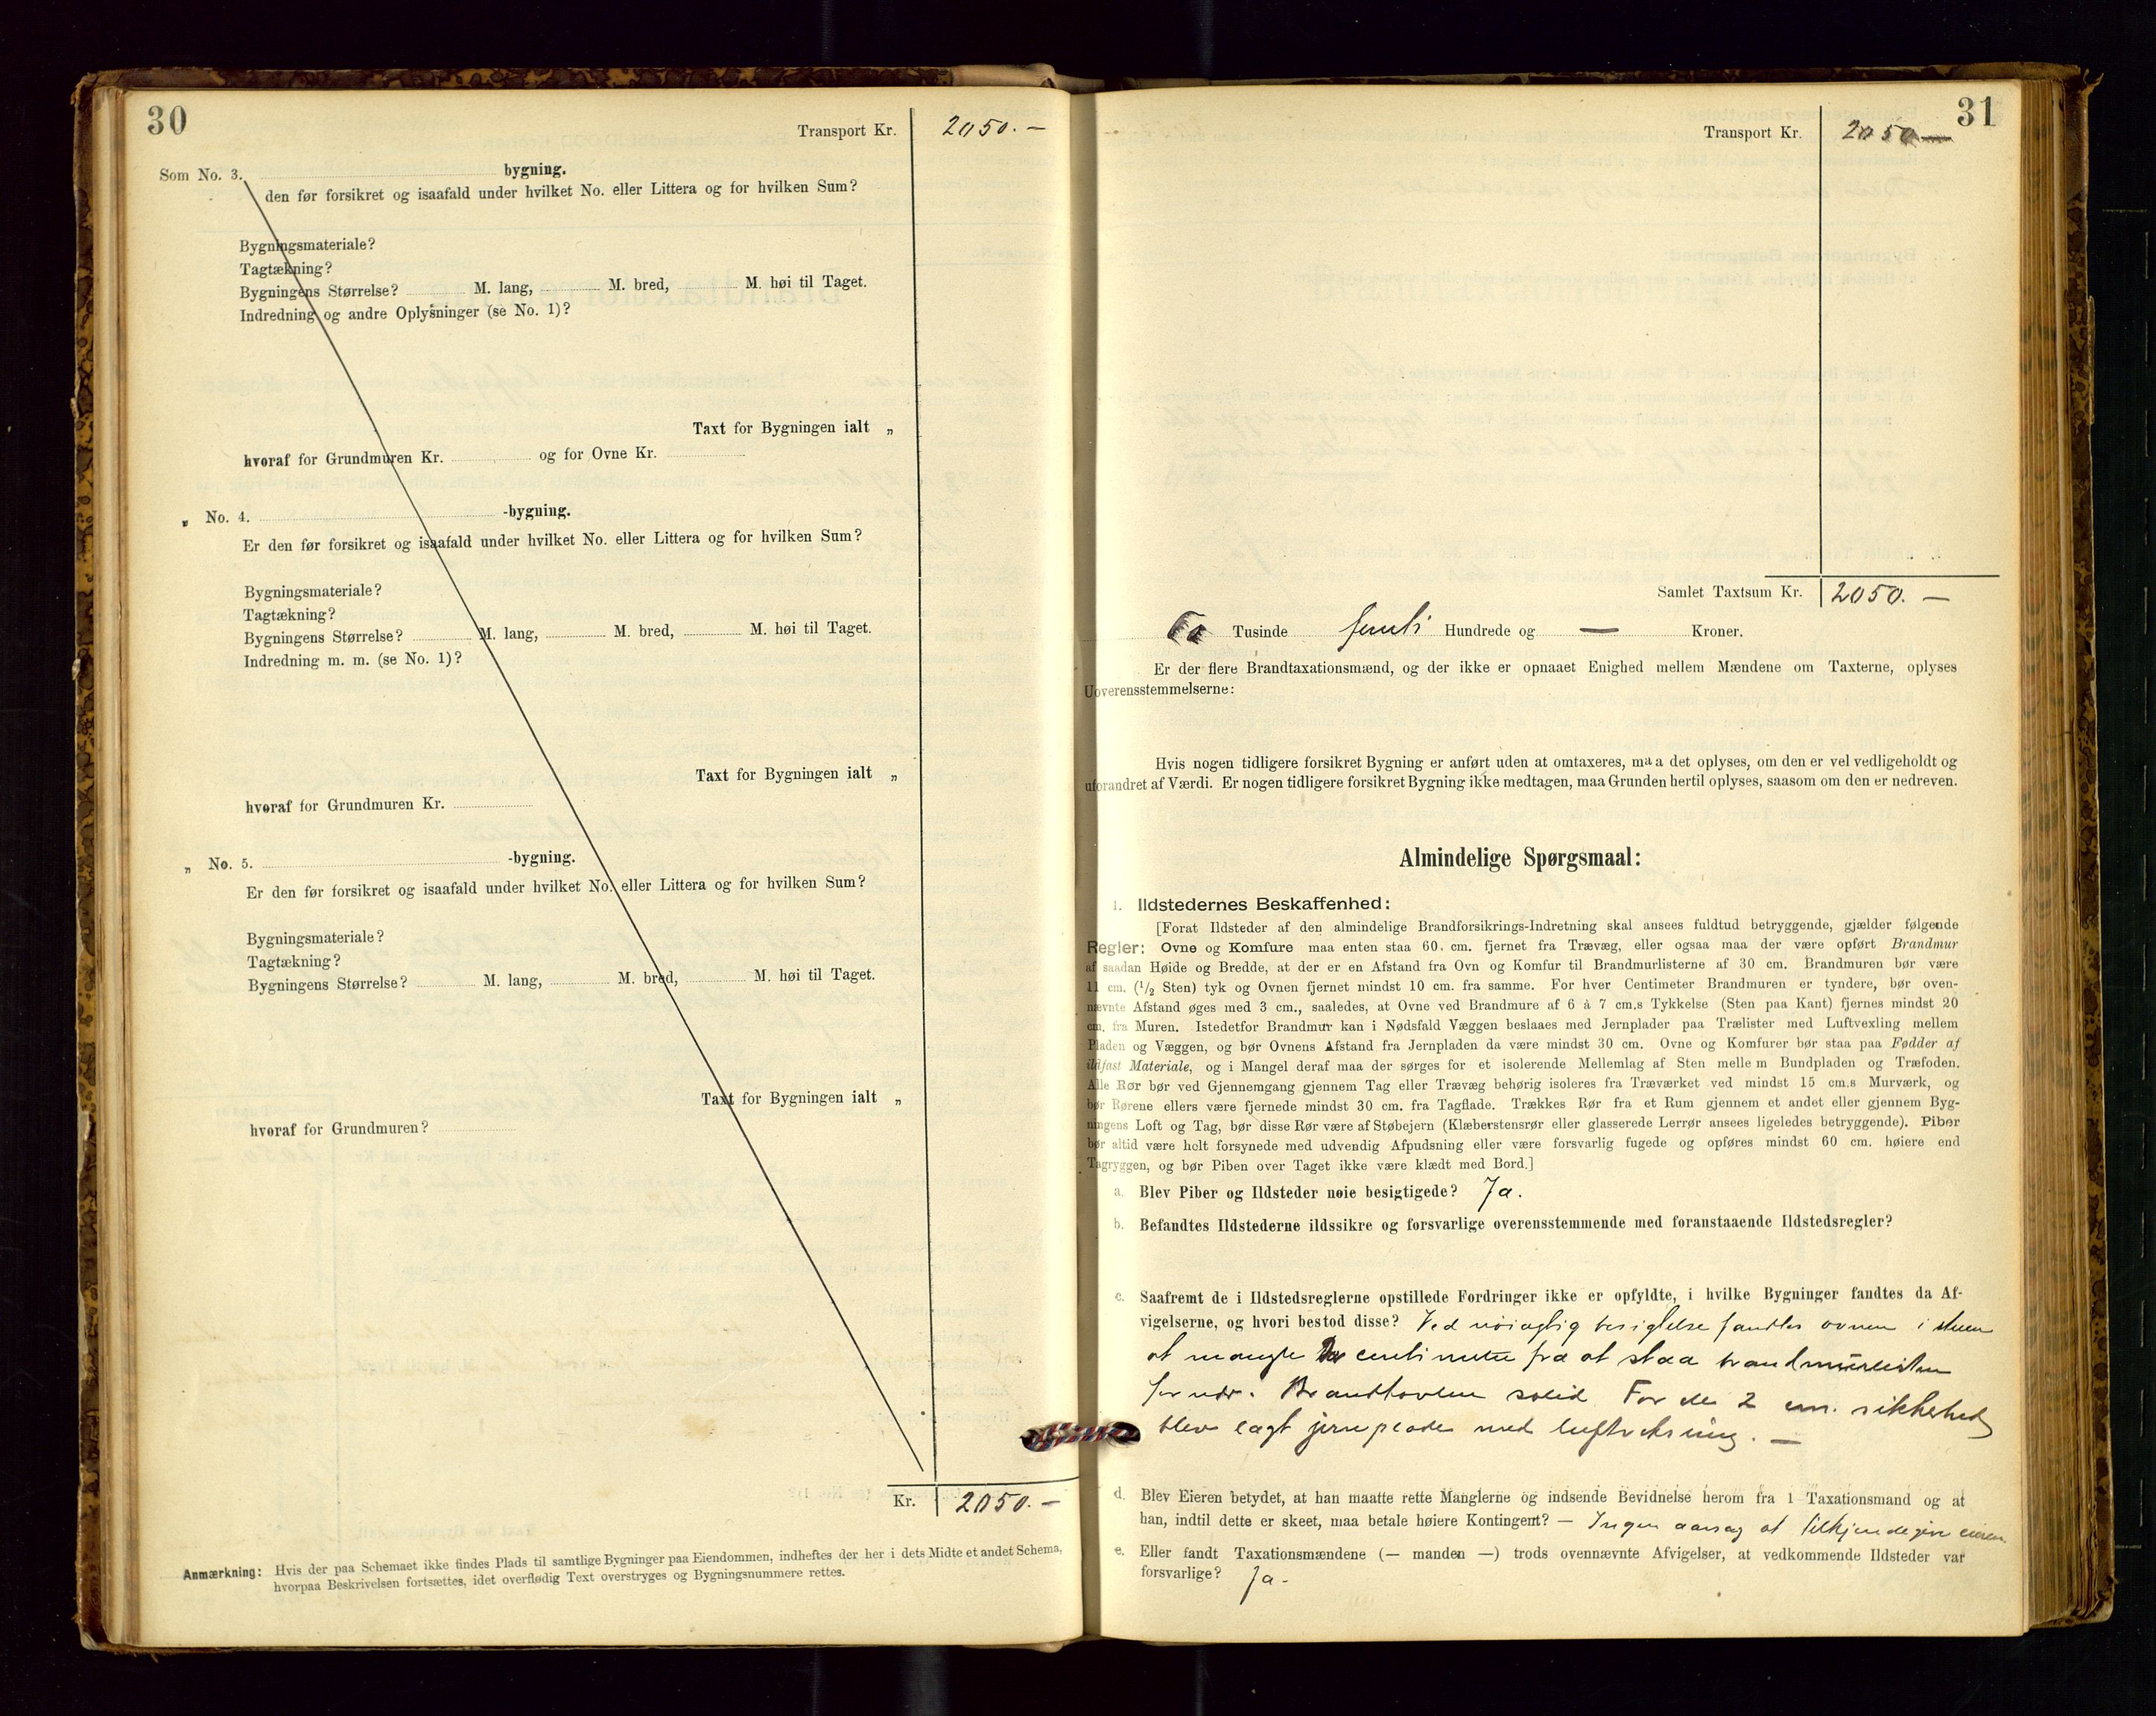 30
Transport Kr. 2050.-
Som No. 3. bygning.
den før forsikret og isaafald under hvilket No. eller Littera og for hvilken Sum?
Bygningsmateriale?
Tagtækning?
Bygningens Størrelse? M. lang, M. bred, M. høi til Taget.
Indredning og andre Oplysninger (se No. 1)?
Taxt for Bygningen ialt „
hvoraf for Grundmuren Kr. og for Ovne Kr.
„ No. 4. -bygning.
Er den før forsikret og isaafald under hvilket No. eller Littera og for hvilken Sum?
Bygningsmateriale?
Tagtækning?
Bygningens Størrelse? M. lang, M. bred, M. høi til Taget.
Indredning m. m. (se No. 1)?
Taxt for Bygningen ialt „
hvoraf for Grundmuren Kr.
„ No. 5. -bygning.
Er den før forsikret og isaafald under hvilket No. eller Littera og for hvilken Sum?
Bygningsmateriale?
Tagtækning?
Bygningens Størrelse? M. lang, M. bred, M. høi til Taget.
Taxt for Bygningen ialt „
hvoraf for Grundmuren?
Kr. 2050.-
Anmærkning: Hvis der paa Schemaet ikke findes Plads til samtlige Bygninger paa Eiendommen, indheftes der her i dets Midte et andet Schema,
hvorpaa Beskrivelsen fortsættes, idet overflødig Text overstryges og Bygningsnummere rettes.
31
Transport Kr. 2050-
Samlet Taxtsum Kr. 2050.-
To Tusinde femti Hundrede og — Kroner.
Er der flere Brandtaxationsmænd, og der ikke er opnaaet Enighed mellem Mændene om Taxterne, oplyses
Uoverensstemmelserne:
Hvis nogen tidligere forsikret Bygning er anført uden at omtaxeres, maa det oplyses, om den er vel vedligeholdt og
uforandret af Værdi. Er nogen tidligere forsikret Bygning ikke medtagen, maa Grunden hertil oplyses, saasom om den er nedreven.
Almindelige Spørgsmaal:
1. Ildstedernes Beskaffenhed:
[Forat Ildsteder af den almindelige Brandforsikrings-Indretning skal ansees fuldtud betryggende, gjælder følgende
Regler: Ovne og Komfure maa enten staa 60 cm. fjernet fra Trævæg, eller ogsaa maa der være opført Brandmur
af saadan Høide og Bredde, at der er en Afstand fra Ovn og Komfur til Brandmurlisterne af 30 cm. Brandmuren bør være
11 cm. (1/2 Sten) tyk og Ovnen fjernet mindst 10 cm. fra samme. For hver Centimeter Brandmuren er tyndere, bør oven-
nævnte Afstand øges med 3 cm., saaledes, at Ovne ved Brandmure af 6 à 7 cm.s Tykkelse (Sten paa Kant) fjernes mindst 20
cm. fra Muren. Istedetfor Brandmur kan i Nødsfald Væggen beslaaes med Jernplader paa Trælister med Luftvexling mellem
Pladen og Væggen, og bør Ovnens Afstand fra Jernpladen da være mindst 30 cm. Ovne og Komfurer bør staa paa Fødder af
ildfast Materiale, og i Mangel deraf maa der sørges for et isolerende Mellemlag af Sten mellem Bundpladen og Træfoden.
Alle Rør bør ved Gjennemgang gjennem Tag eller Trævæg behørig isoleres fra Træværket ved mindst 15 cm.s Murværk, og
bør Rørene ellers være fjernede mindst 30 cm. fra Tagflade. Trækkes Rør fra et Rum gjennem et andet eller gjennem Byg-
ningens Loft og Tag, bør disse Rør være af Støbejern (Klæberstensrør eller glasserede Lerrør ansees ligeledes betryggende). Piber
bør altid være helt forsynede med udvendig Afpudsning eller være forsvarlig fugede og opføres mindst 60 cm. høiere end
Tagryggen, og bør Piben over Taget ikke være klædt med Bord.]
a. Blev Piber og Ildsteder nøie besigtigede? Ja.
b. Befandtes Ildstederne ildssikre og forsvarlige overensstemmende med foranstaaende Ildstedsregler?
c. Saafremt de i Ildstedsreglerne opstillede Fordringer ikke er opfyldte, i hvilke Bygninger fandtes da Af-
vigelserne, og hvori bestod disse? Ved nøiagtig besigtelse fandtes ovnen i stuen
at mangle centimeter fra at staa brandmurlisten
Brandtavlen solid For de 2 cm. sikkerhed
blev lagt jernplade med luftveksling. —
d. Blev Eieren betydet, at han maatte rette Manglerne og indsende Bevidnelse herom fra 1 Taxationsmand og at
han, indtil dette er skeet, maa betale høiere Kontingent? — Ingen aarsag at tilkjendegive eieren.
e. Eller fandt Taxationsmændene (— manden —) trods ovennævnte Afvigelser, at vedkommende Ildsteder var
forsvarlige? Ja-